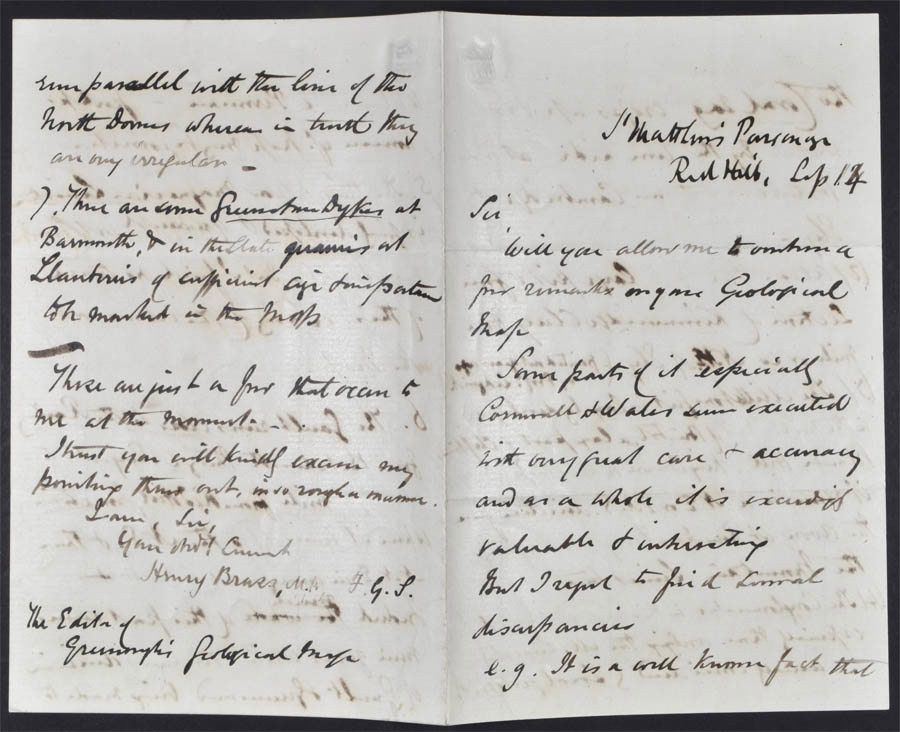 St Matthew's Parsonage
Red Hill, Sep 14
Sir
Will you allow me to venture a
few remarks on your Geological
Map
Some parts of it especially
Cornwall & Wales seem executed
with very great care & accuracy
and as a whole it is exceedingly
valuable & interesting
But I regret to find several
discrepancies
e.g. It is a well known fact that
run parallel with the line of the
North Downs whereas in truth they
are very irregular
7). There are some Greenstone Dykes at
Barmouth, & in the Slate quarries at
Llanberis of sufficient size & importance
to be marked in the Map
These are just a few that occur to
me at the moment.
I trust you will kindly excuse my
pointing them out, in so rough a manner.
I am, Sir,
Your obedt Servant
Henry Brass, M.A. F.G.S.
The Editor of
Greenough's Geological Map